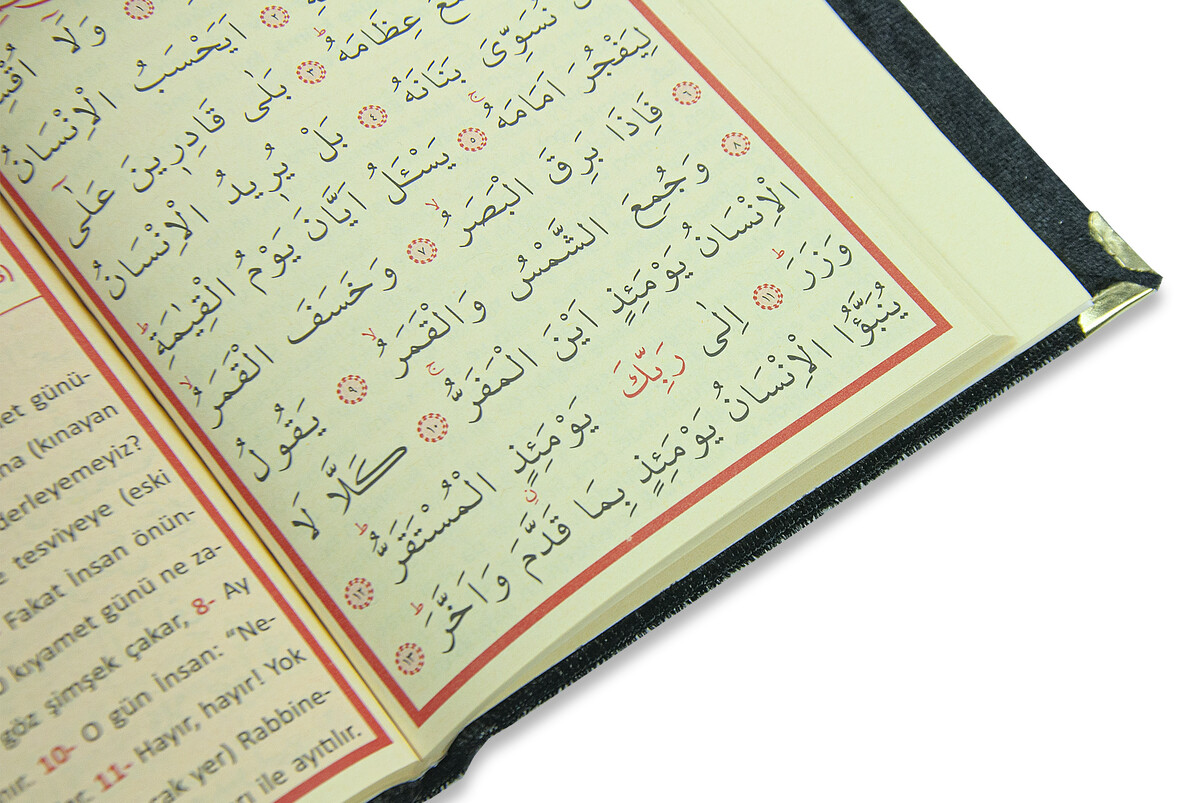 ١ وَلَٓا
٢ اَيَحْسَبُ الْاِنْسَانُ
عِظَامَهُ ۜ ٣ بَلٰى قَادِر۪ينَ عَلٰٓى
نُسَوِّيَ بَنَانَهُ ٤ بَلْ يُر۪يدُ الْاِنْسَانُ
لِيَفْجُرَ اَمَامَهُ ۚ ٥ يَسْـَٔلُ اَيَّانَ يَوْمُ الْقِيٰمَةِ ۜ
٦ فَاِذَا بَرِقَ الْبَصَرُ ۙ ٧ وَخَسَفَ الْقَمَرُ ۙ
٨ وَجُمِعَ الشَّمْسُ وَالْقَمَرُ ۙ ٩ يَقُولُ
الْاِنْسَانُ يَوْمَئِذٍ اَيْنَ الْمَفَرُّ ۚ ١٠ كَلَّا لَا
وَزَرَ ۜ ١١ اِلٰى رَبِّكَ يَوْمَئِذٍ الْمُسْتَقَرُّ ۜ ١٢
يُنَبَّؤُا الْاِنْسَانُ يَوْمَئِذٍ بِمَا قَدَّمَ وَاَخَّرَ ۜ ١٣
günü-
(kınayan
derleyemeyiz?
tesviyeye (eski
Fakat İnsan önün-
kıyamet günü ne za-
göz şimşek çakar, 8- Ay
10- O gün İnsan: "Ne-
11- Hayır, hayır! Yok
yer) Rabbine-
ile ayıtılır.